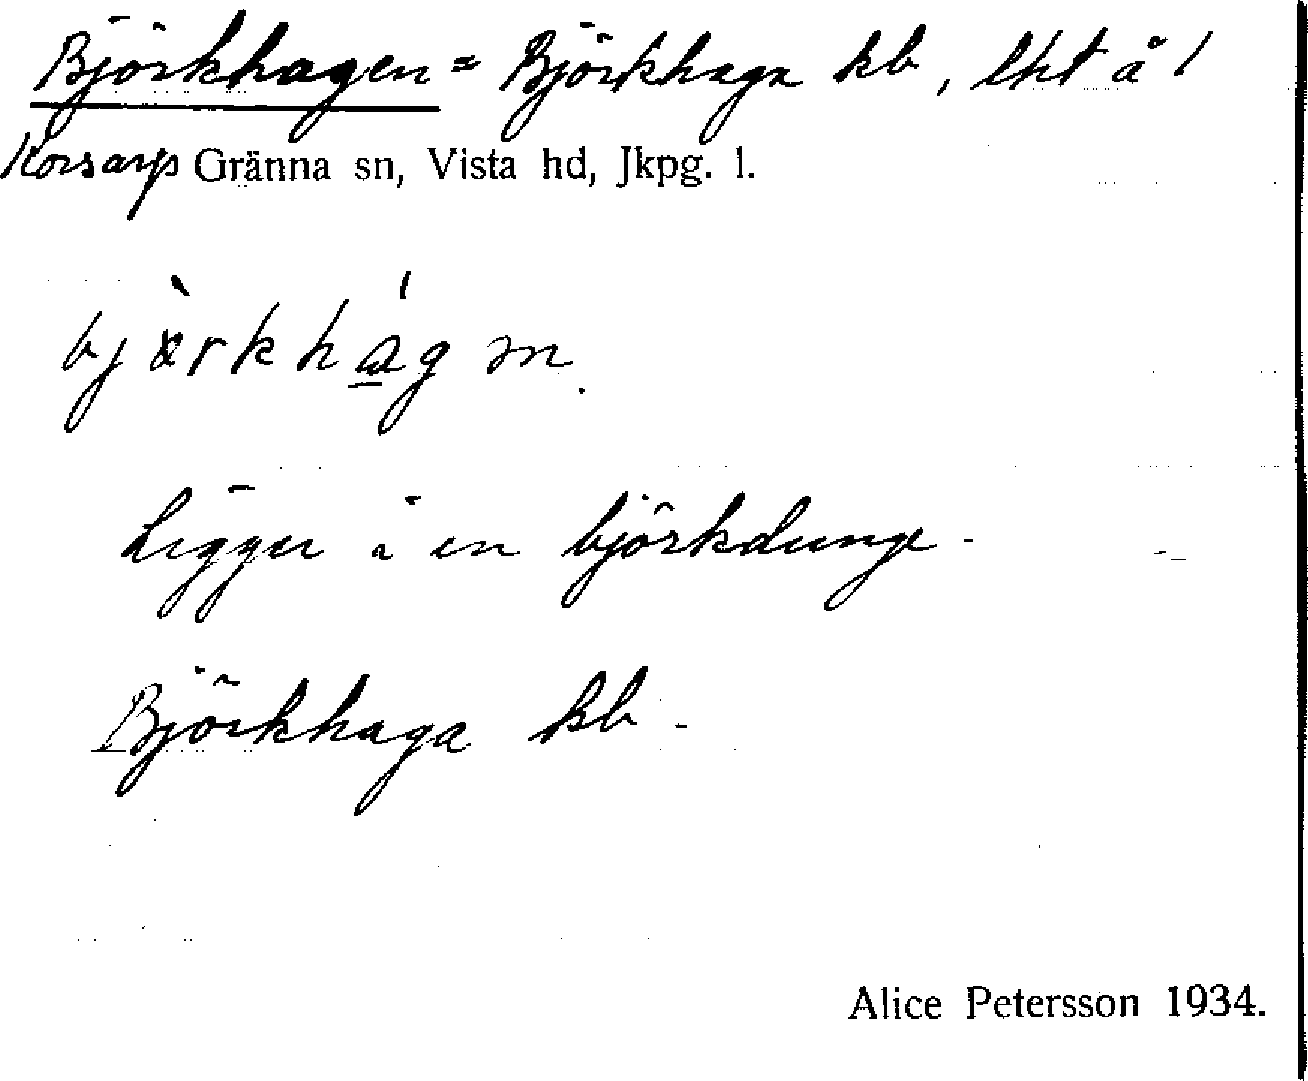 Björkhagen = Björkhaga kb, lht å 1
Korsarp Gränna sn, Vista hd, Jkpg. l.
Ligger i en björkdunge.
Björkhaga kb.
Alice Petersson 1934.